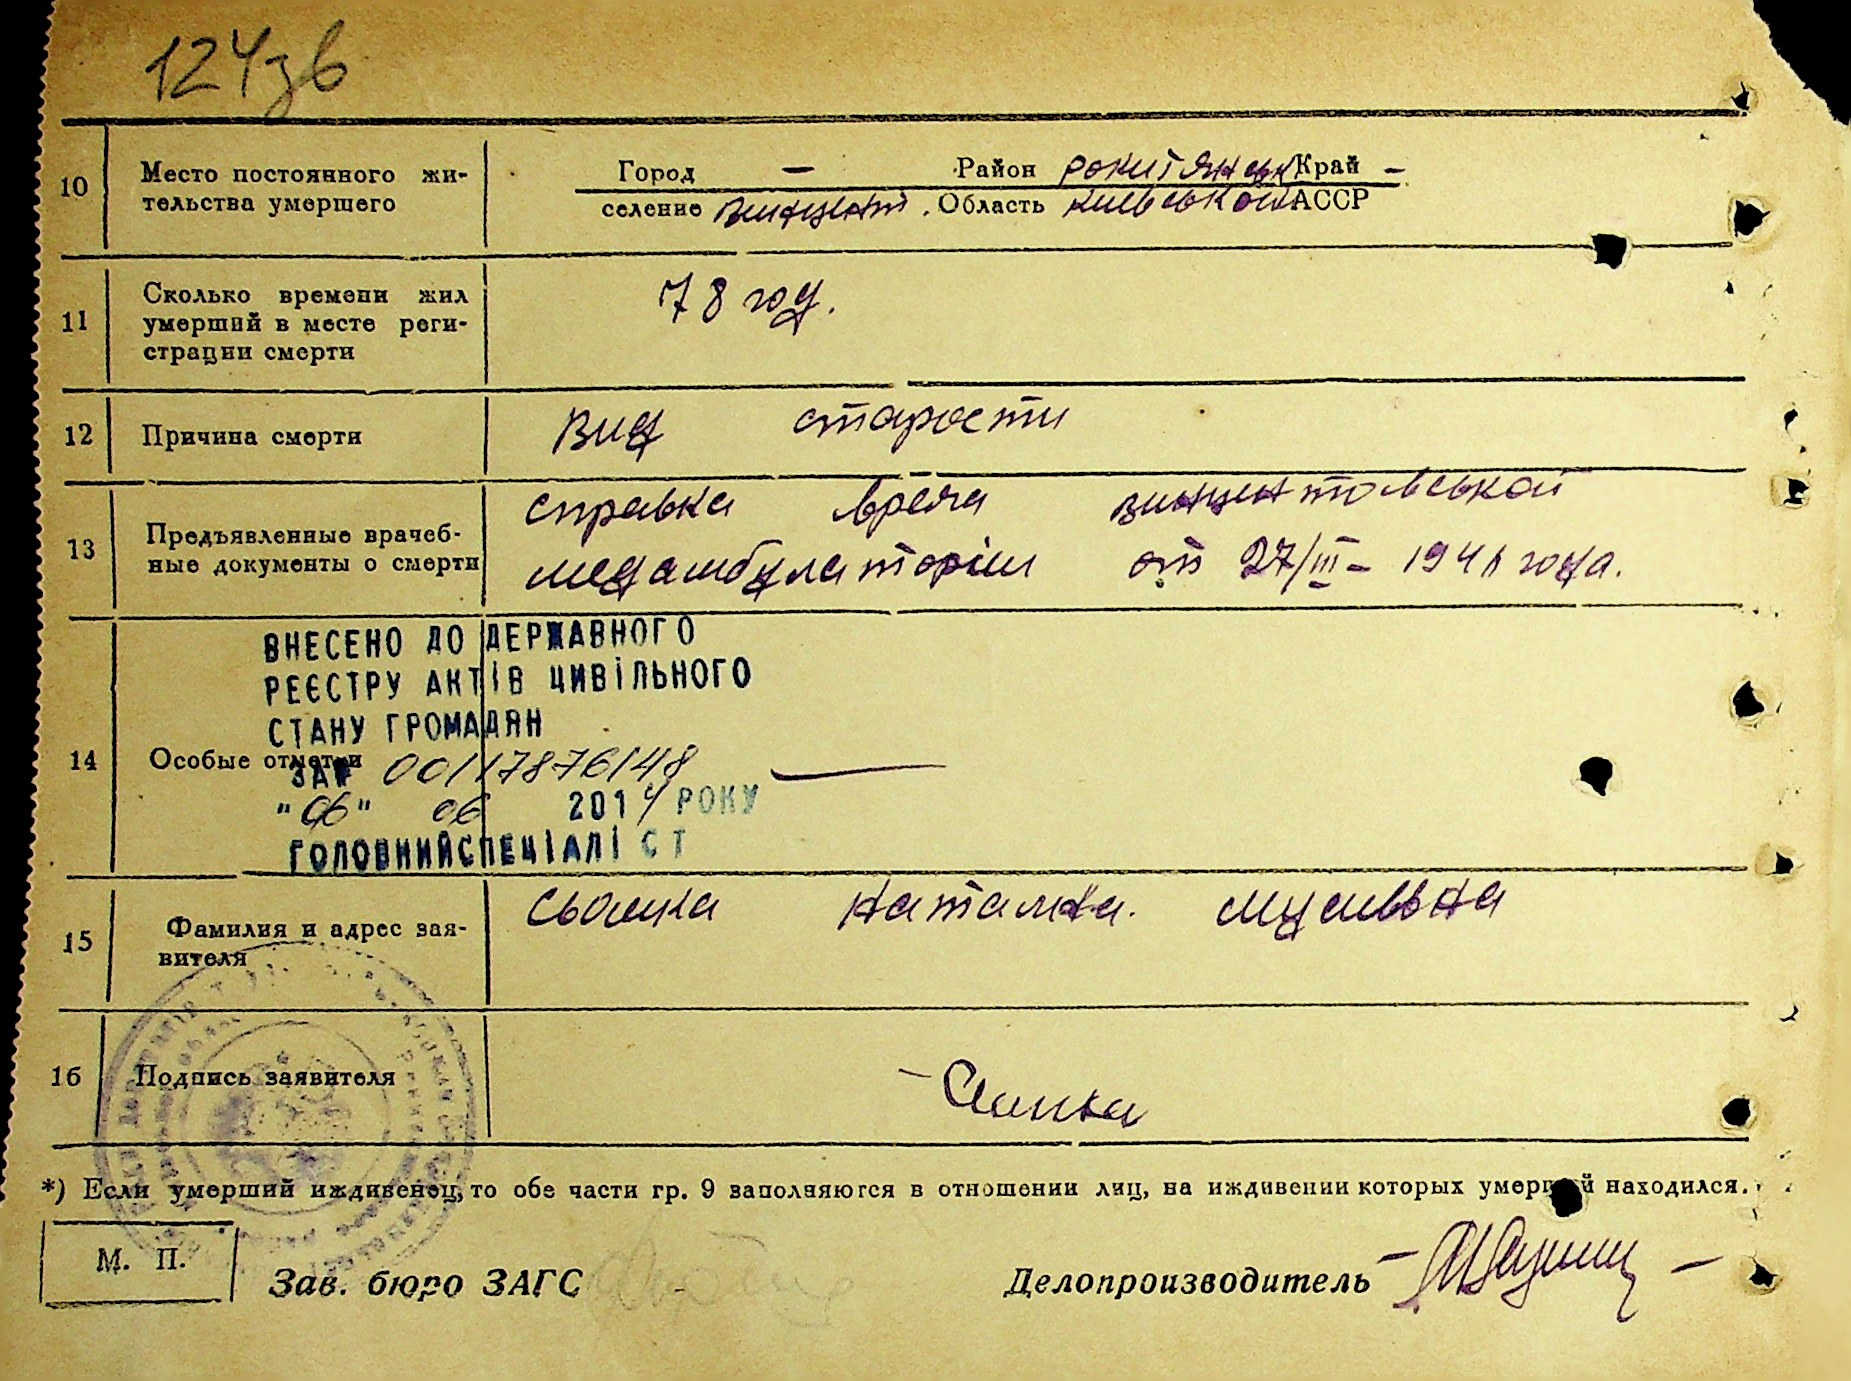 124зв
10 Место постоянного жи-
тельства умершего
Город — Район рокитянськ Край -
селение Винцент. Область киевской АССР
11 Сколько времени жил
умерший в месте реги-
страции смерти
78 год.
12 Причина смерти
вид старости
13 Предъявленные врачеб-
ные документы о смерти
справка врача винцентовськой
медамбулаторіи от 27/III - 1941 года.
ВНЕСЕНО ДО ДЕРЖАВНОГО
РЕЄСТРУ АКТІВ ЦИВІЛЬНОГО
СТАНУ ГРОМАДЯН
14 Особые отметки
ЗА № 00117876148
"06" 06 2014 РОКУ
ГОЛОВНИЙ СПЕЦІАЛІСТ
15 Фамилия и адрес зая-
вителя
Наталка
16 Подпись заявителя
*) Если умерший иждивенец, то обе части гр. 9 заполняются в отношении лиц, на иждивении которых умерший находился.
М. П.
Зав. бюро ЗАГС
Делопроизводитель